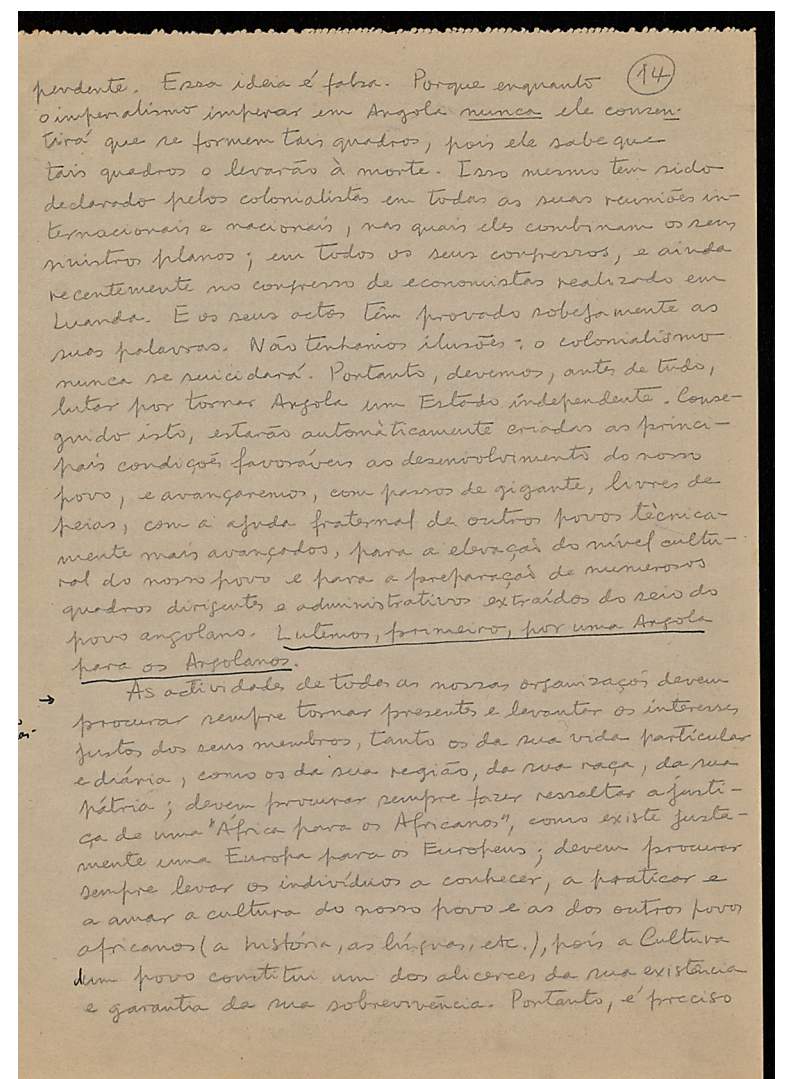 pendente. Essa ideia é falsa. Porque enquanto
14
o imperialismo imperar em Angola nunca ele consen-
tirá que se formem tais quadros, pois ele sabe que
tais quadros o levarão à morte. Isso mesmo tem sido
declarado pelos colonialistas em todas as suas reuniões in-
ternacionais e nacionais, nas quais eles combinam os seus
sinistros planos; em todos os seus congressos, e ainda
recentemente no congresso de economistas realizado em
Luanda. E os seus actos têm provado sobejamente as
suas palavras. Não tenhamos ilusões: o colonialismo
nunca se suicidará. Portanto, devemos, antes de tudo,
lutar por tornar Angola um Estado independente. Conse-
guido isto, estarão automàticamente criadas as princi-
pais condições favoráveis ao desenvolvimento do nosso
povo, e avançaremos, com passos de gigante, livres de
peias, com a ajuda fraternal de outros povos tècnica-
mente mais avançados, para a elevação do nível cultu-
ral do nosso povo e para a preparação de numerosos
quadros dirigentes e administrativos extraídos do seio do
povo angolano. Lutemos, primeiro, por uma Angola
para os Angolanos.
→ As actividades de todas as nossas organizações devem
procurar sempre tornar presentes e levantar os interesses
justos dos seus membros, tanto os da sua vida particular
e diária, como os da sua região, da sua raça, da sua
pátria; devem procurar sempre fazer ressaltar a justi-
ça de uma "África para os Africanos", como existe justa-
mente uma Europa para os Europeus; devem procurar
sempre levar os indivíduos a conhecer, a praticar e
a amar a cultura do nosso povo e as dos outros povos
africanos (a história, as línguas, etc.), pois a Cultura
dum povo constitui um dos alicerces da sua existência
e garantia da sua sobrevivência. Portanto, é preciso